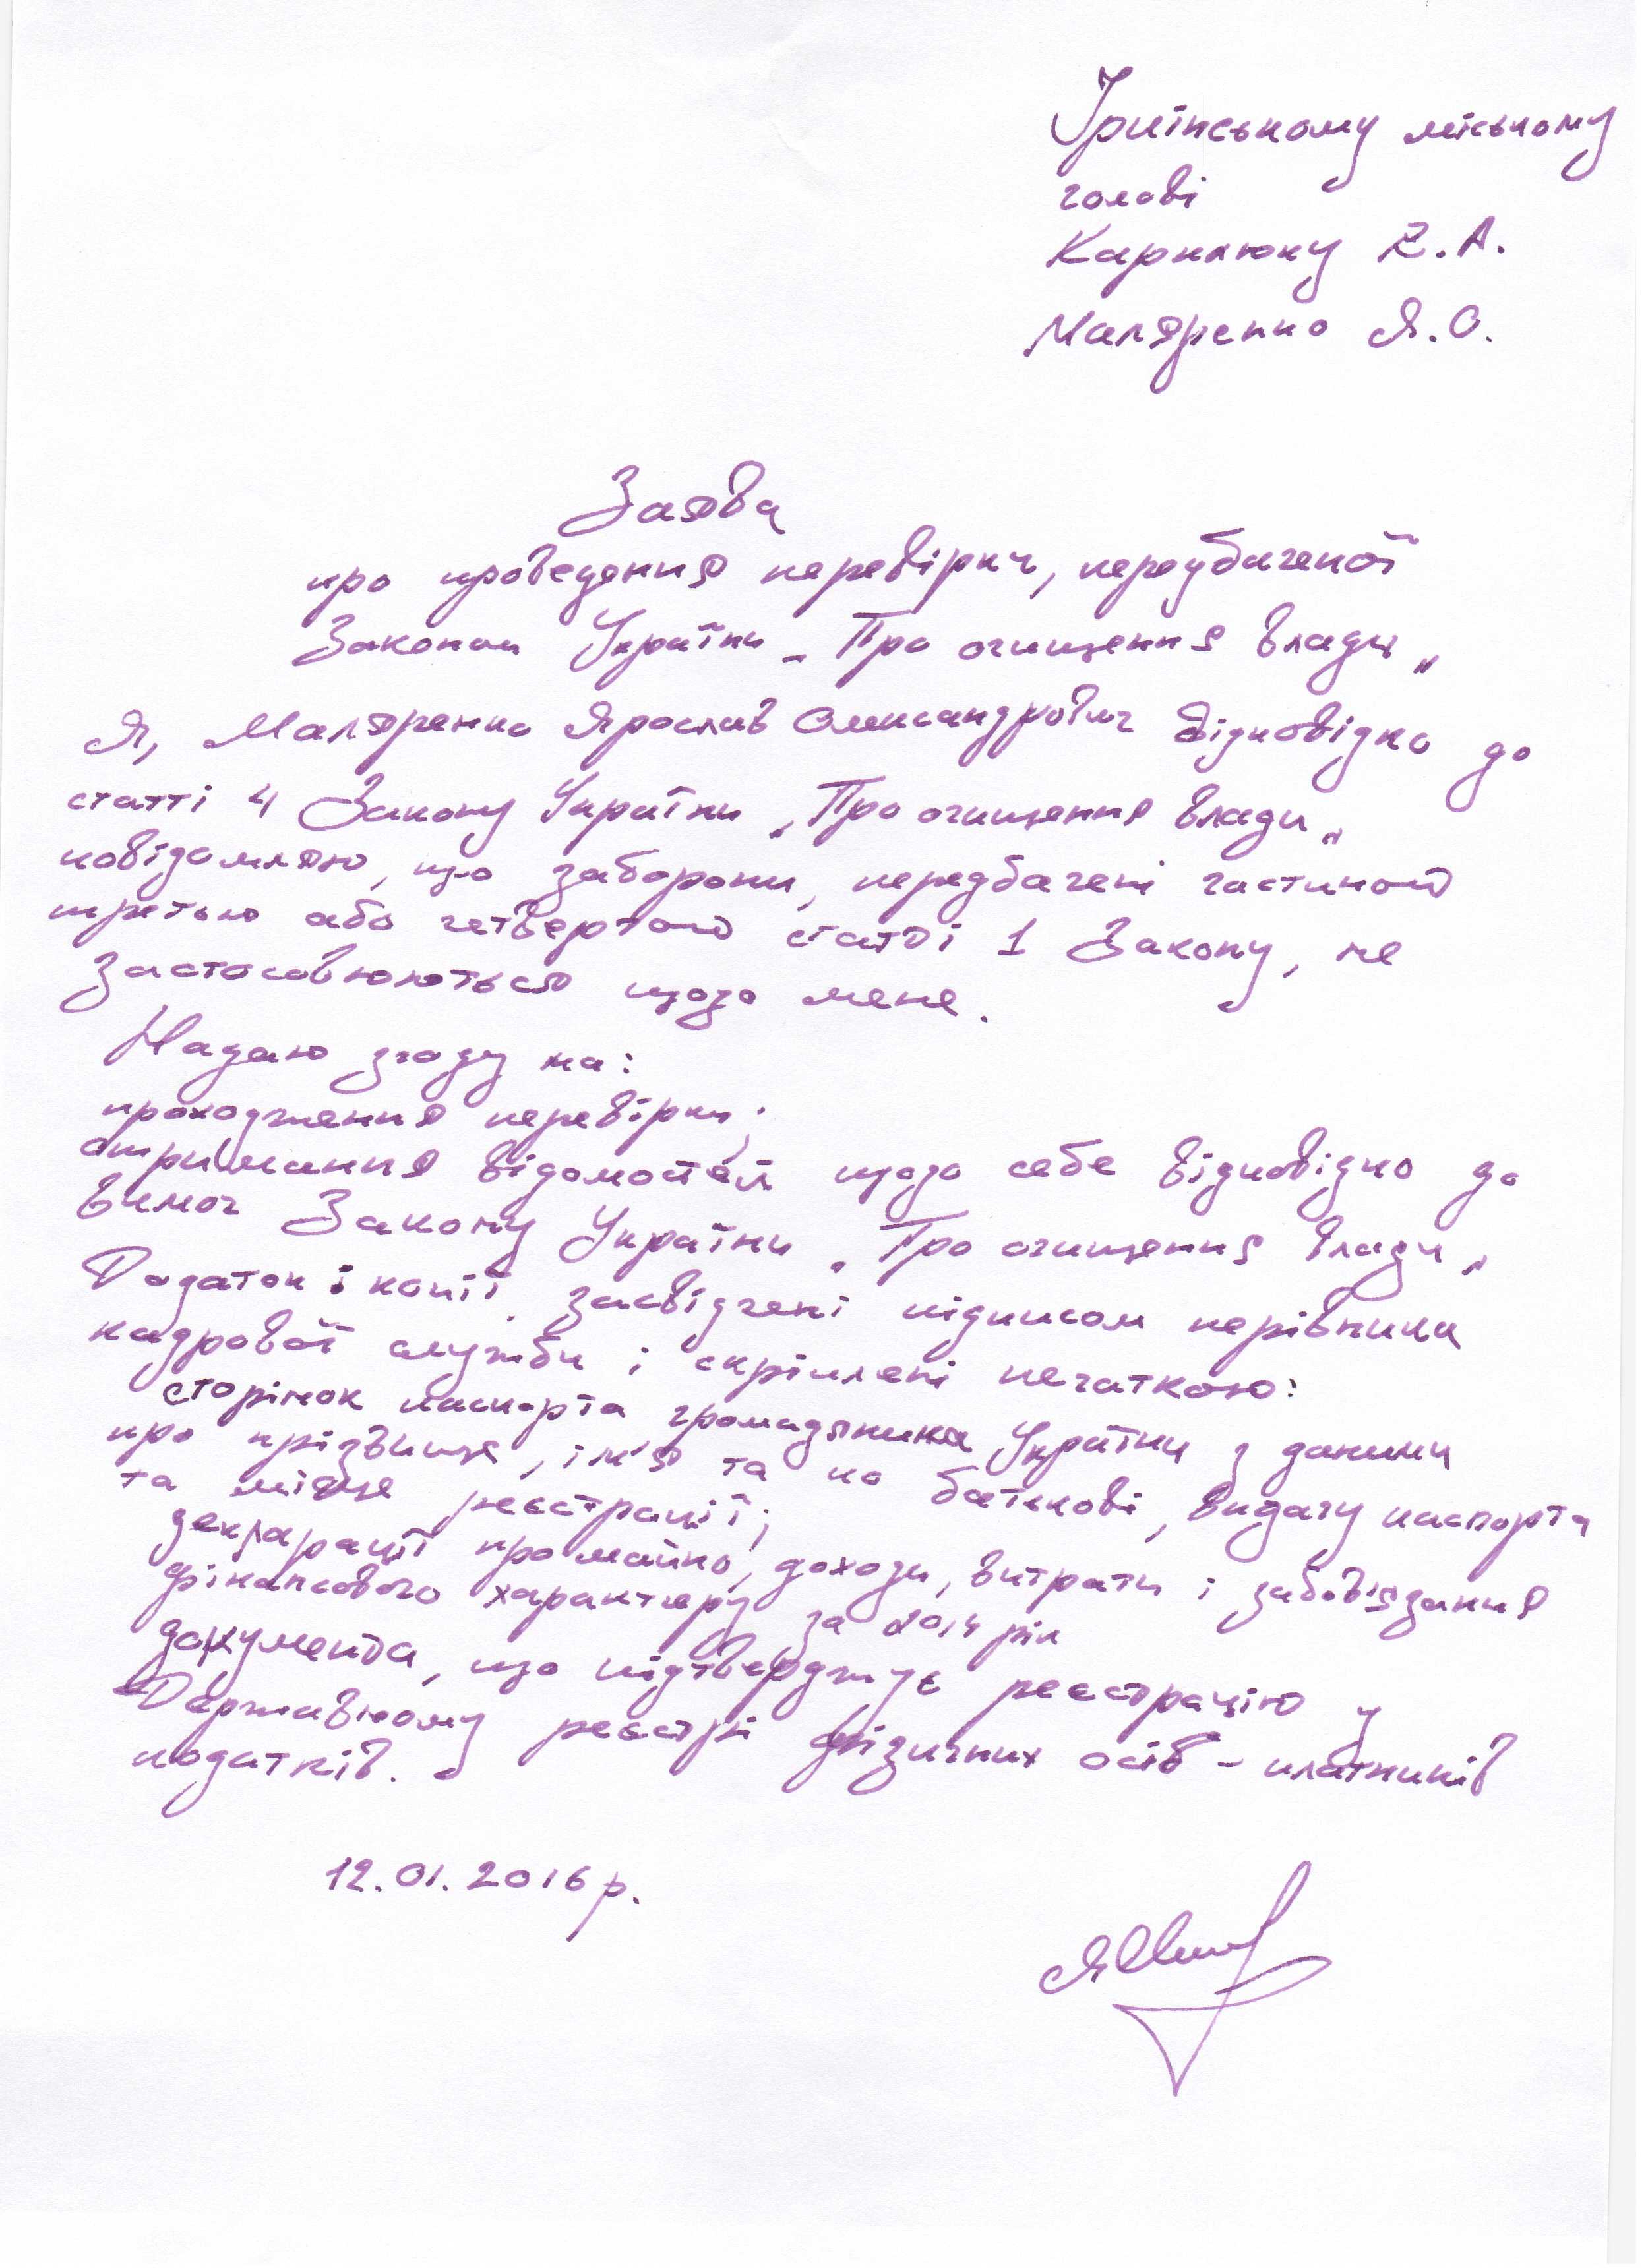 Ірпінському міському
голові
Карплюку В.А.
Маляренко Я.О.
Заява
про проведення перевірки, передбаченої
Законом України „Про очищення влади„
Я, Маляренко Ярослав Олександрович відповідно до
статті 4 Закону України „Про очищення влади„
повідомляю, що заборони, передбачені частиною
третьою або четвертою статті 1 Закону, не
застосовюються щодо мене.
Надаю згоду на:
проходження перевірки;
отримання відомостей щодо себе відповідно до
вимог Закону України „Про очищення влади„
Додаток: копії, засвідчені підписом керівника
кадрової служби і скріплені печаткою:
сторінок паспорта громадянина України з даними
про прізвище, ім'я та по батькові, видачу паспорта
та місце реєстрації;
декларації про майно, доходи, витрати і забов'язання
фінансового характеру за 2014 рік
документа, що підтверджує реєстрацію у
Державному реєстрі фізичних осіб - платників
податків.
12.01.2016 р.